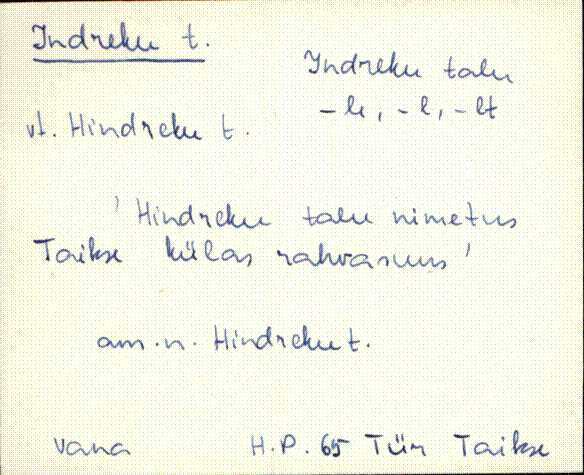 Indreku t.
Indreku talu
-le, -l, -lt
vt. Hindreku t.
'Hindreku talu nimetus
Taikse külas rahvasuus'
am.n. Hindreku t.
vana H.P. 65 Tür Taikse